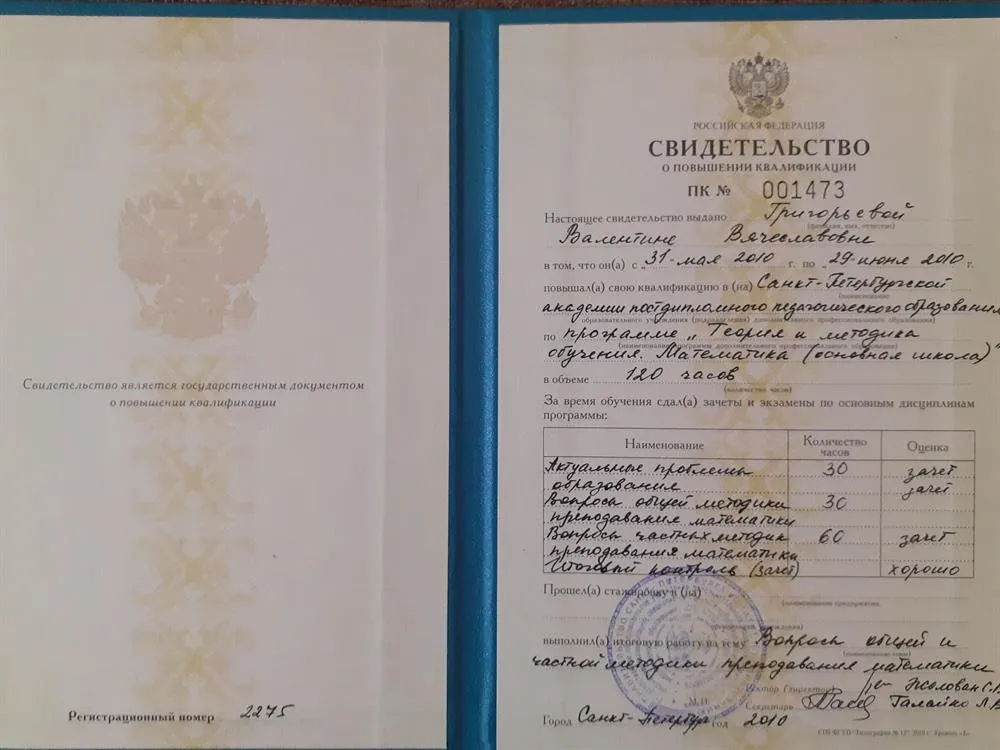 Свидетельство является государственным документом
о повышении квалификации
Регистрационный номер 2275
РОССИЙСКАЯ ФЕДЕРАЦИЯ
СВИДЕТЕЛЬСТВО
О ПОВЫШЕНИИ КВАЛИФИКАЦИИ
ПК № 001473
Настоящее свидетельство выдано Григорьевой
(фамилия, имя, отчество)
Валентине Вячеславовне
в том, что он(а) с „31“ мая 2010 г. по „29“ июня 2010 г.
повышал(а) свою квалификацию в (на) Санкт-Петербургской
(наименование
академии постдипломного педагогического образования
образовательного учреждения (подразделения) дополнительного профессионального образования)
по программе „Теория и методика
(наименование программы дополнительного профессионального образования)
обучения. Математика (основная школа)"
в объеме 120 часов
(количество часов)
За время обучения сдал(а) зачеты и экзамены по основным дисциплинам
программы:
Наименование Количество часов Оценка
Актуальные проблемы 30 зачет
образования зачет
Вопросы общей методики 30
преподавания математики
Вопросы частных методик 60 зачет
преподавания математики
Итоговый контроль (зачет) хорошо
Прошел(а) стажировку в (на)
(наименование предприятия,
выполнил(а) итоговую работу на тему Вопросы общей и
(наименование темы)
частной методики преподавания математики
Ректор (директор) Жолован С.В.
М.П.
Секретарь Галайко Л.В.
Город Санкт-Петербург год 2010